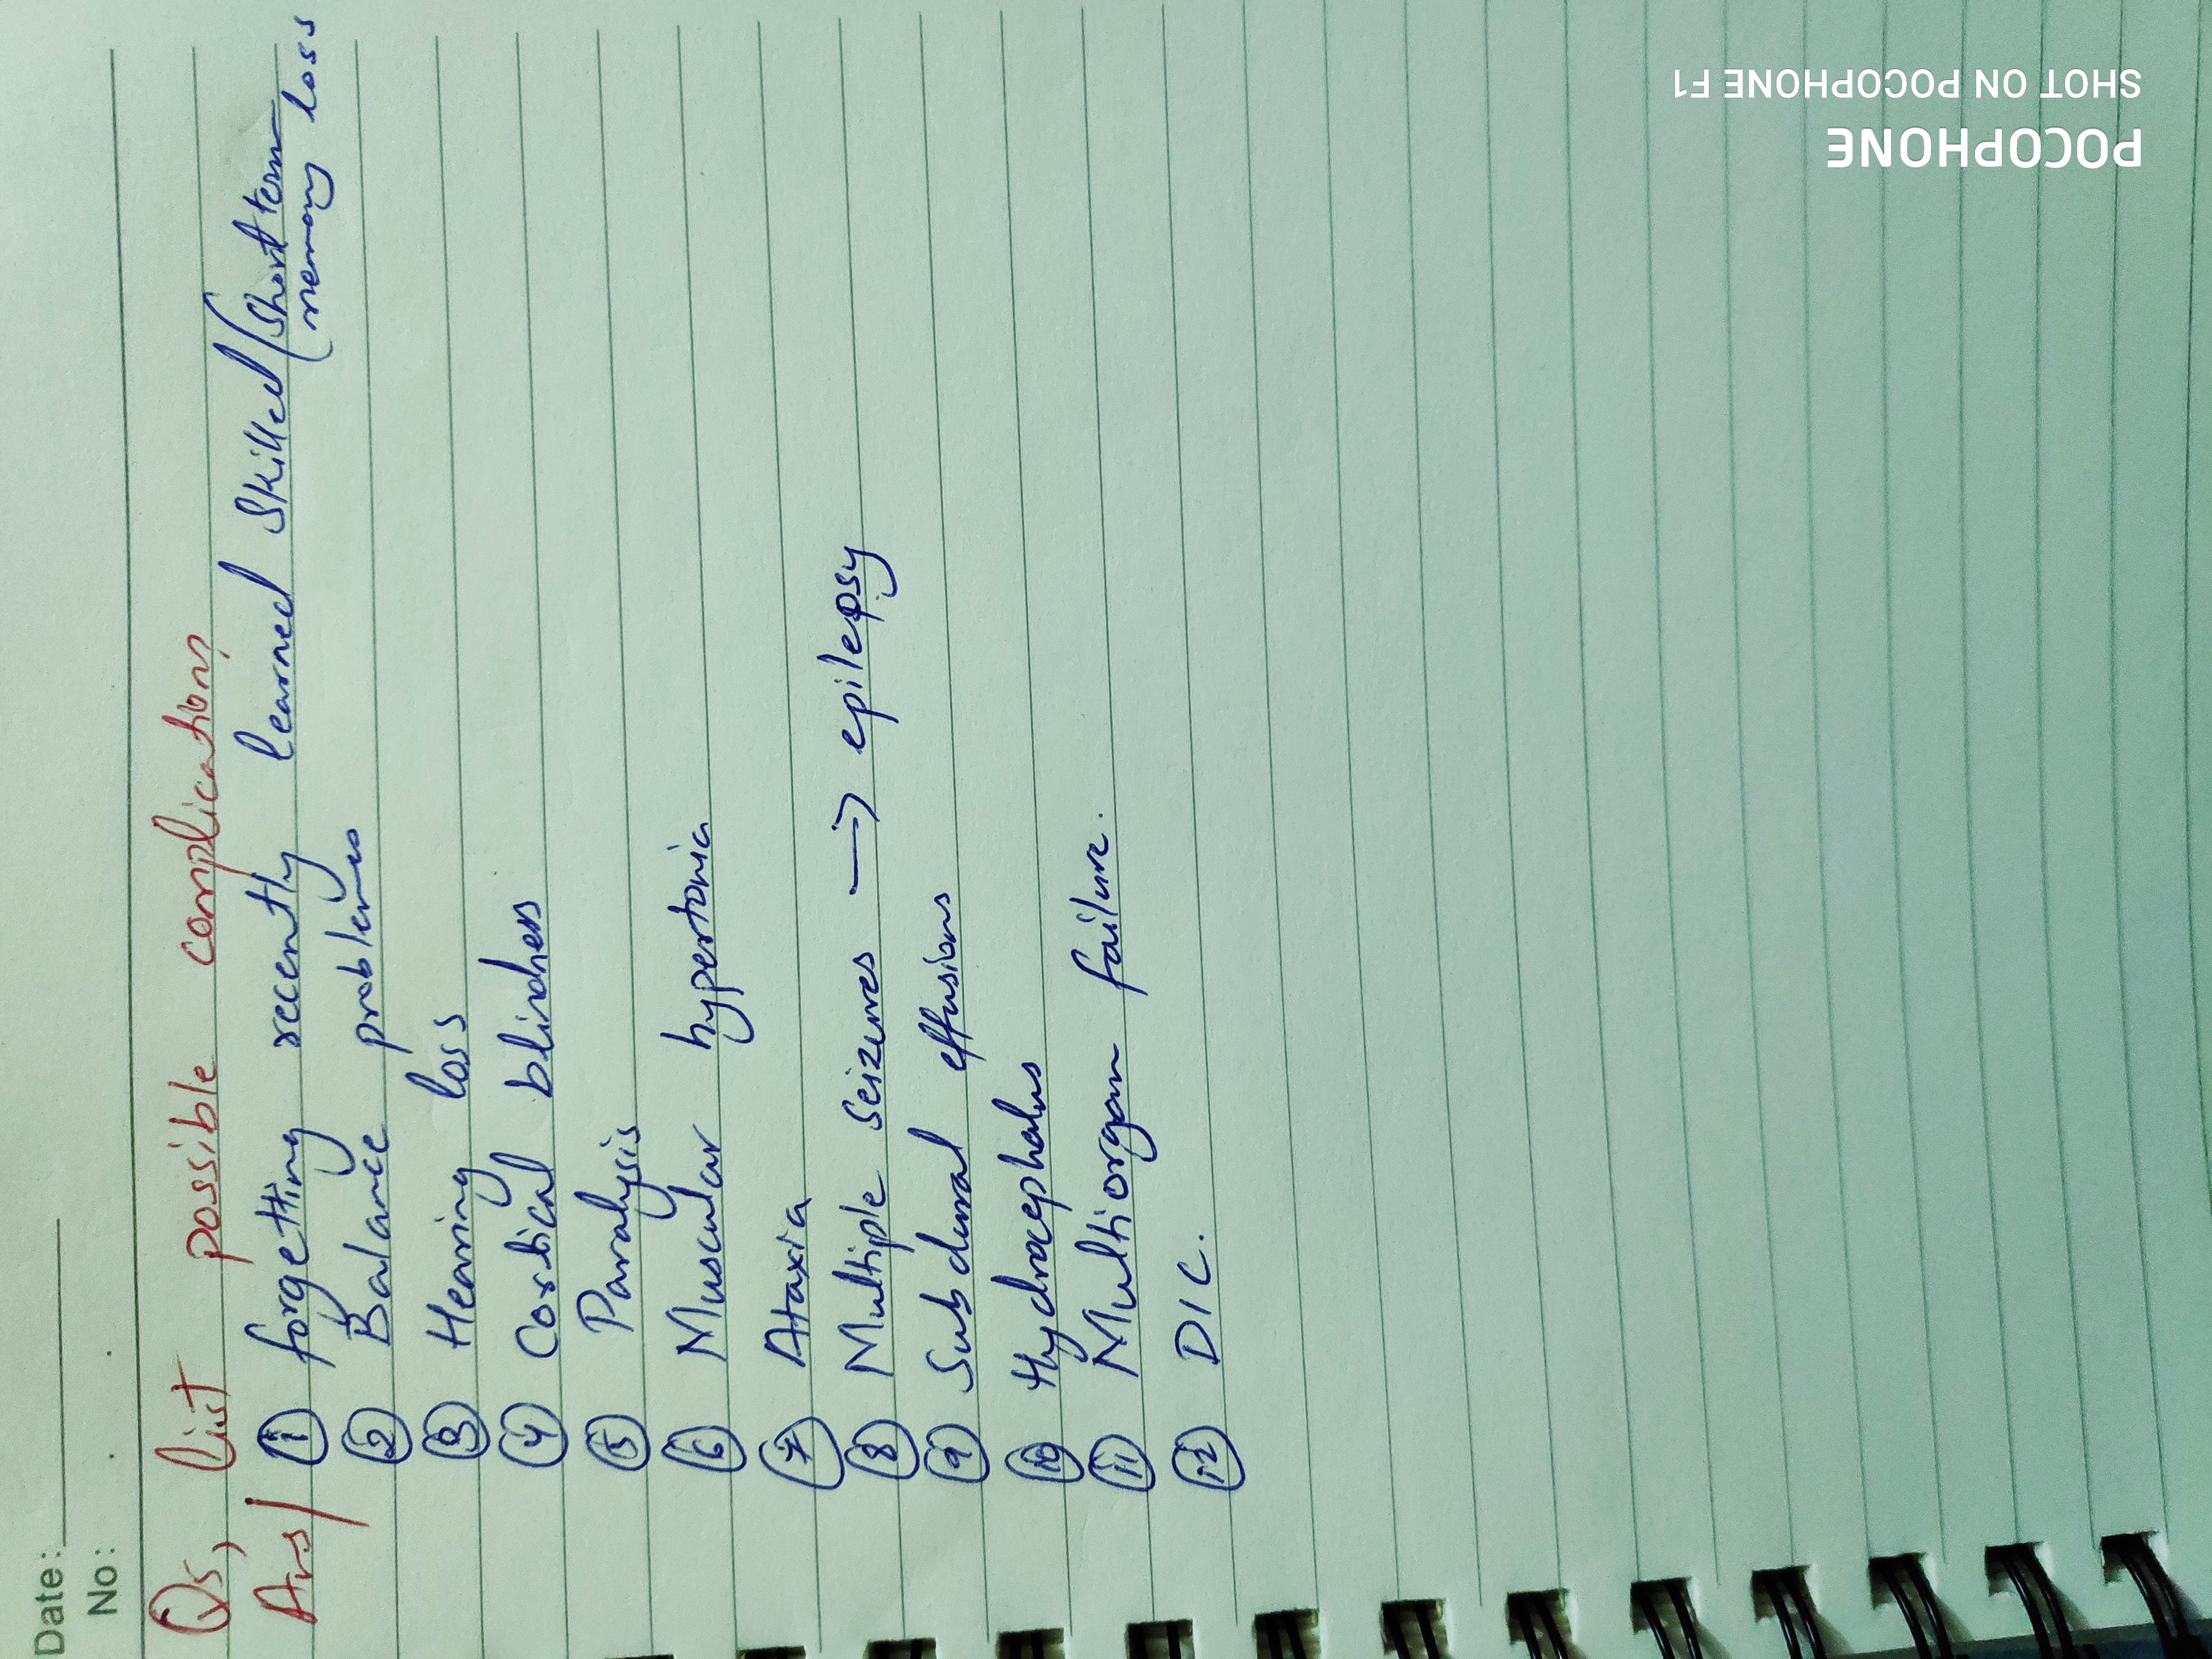 Date:
No:
Q5, list possible complications
Ans/ ① forgetting recently learned skilled (short term
memory loss
② Balance problems
③ Hearing loss
④ Cortical blindness
⑤ Paralysis
⑥ Muscular hypertonia
⑦ Ataxia
⑧ Multiple seizures → epilepsy
⑨ Subdural effusions
⑩ Hydrocephalus
⑪ Multiorgan failure.
⑫ DIC.
POCOPHONE
SHOT ON POCOPHONE F1